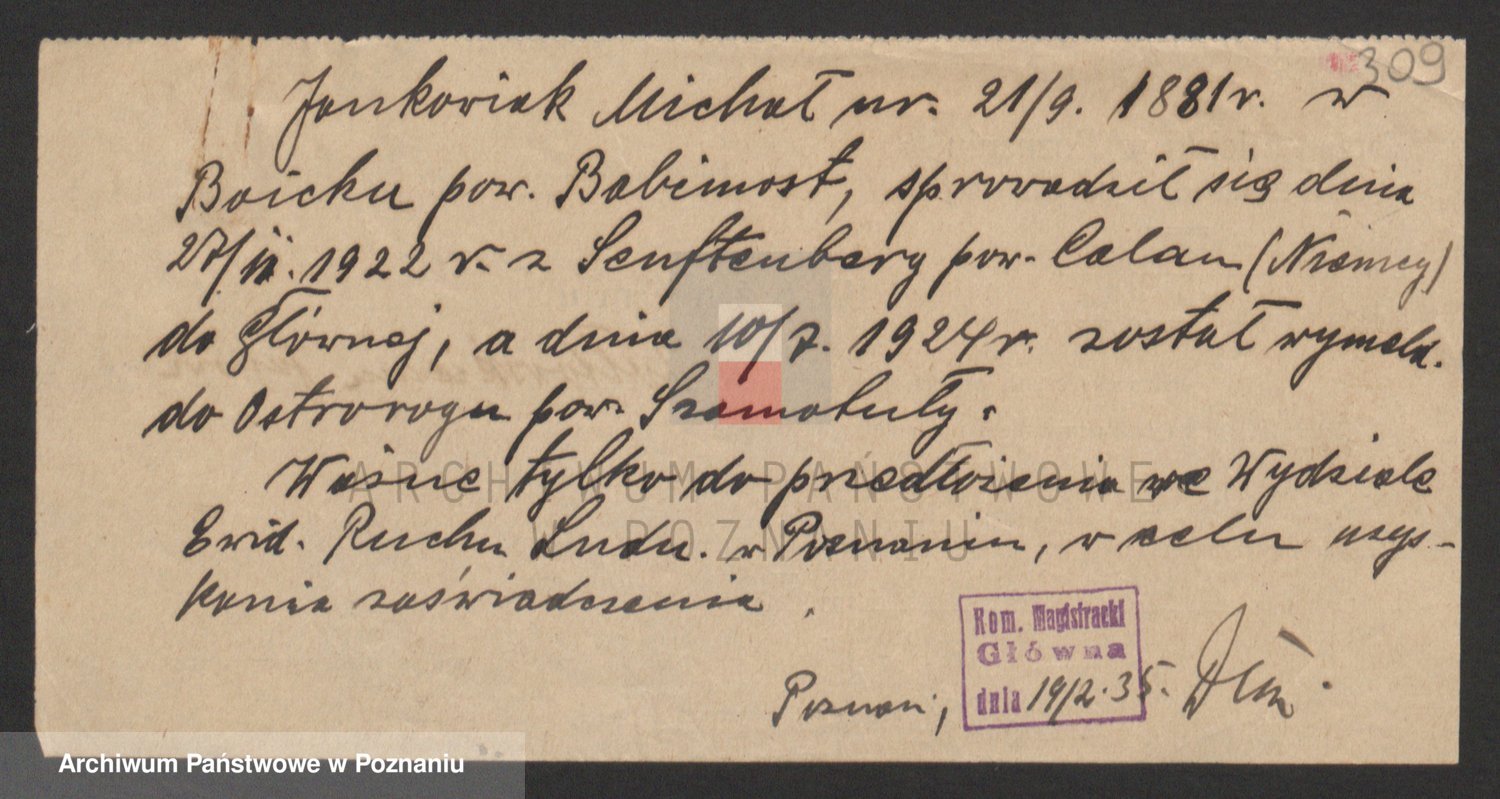 309
Jankowiak Michał ur. 21/9. 1881 r. w
Boicku pow. Babimost, sprowadził się dnia
27/ 1922 r. z Senftenberg pow. Calau (Niemcy)
do Głównej, a dnia 10/7. 1924 r. został wymeld.
do Ostroroga pow. Szamotuły.
Ważne tylko do przedłożenia we Wydziale
Ewid. Ruchu Ludn. w Poznaniu, w celu uzys-
kania zaświadczenia.
Kom. Magistracki
Główna
Poznań, dnia 19/2. 35.
ARCHIWUM PAŃSTWOWE
W POZNANIU
Archiwum Państwowe w Poznaniu